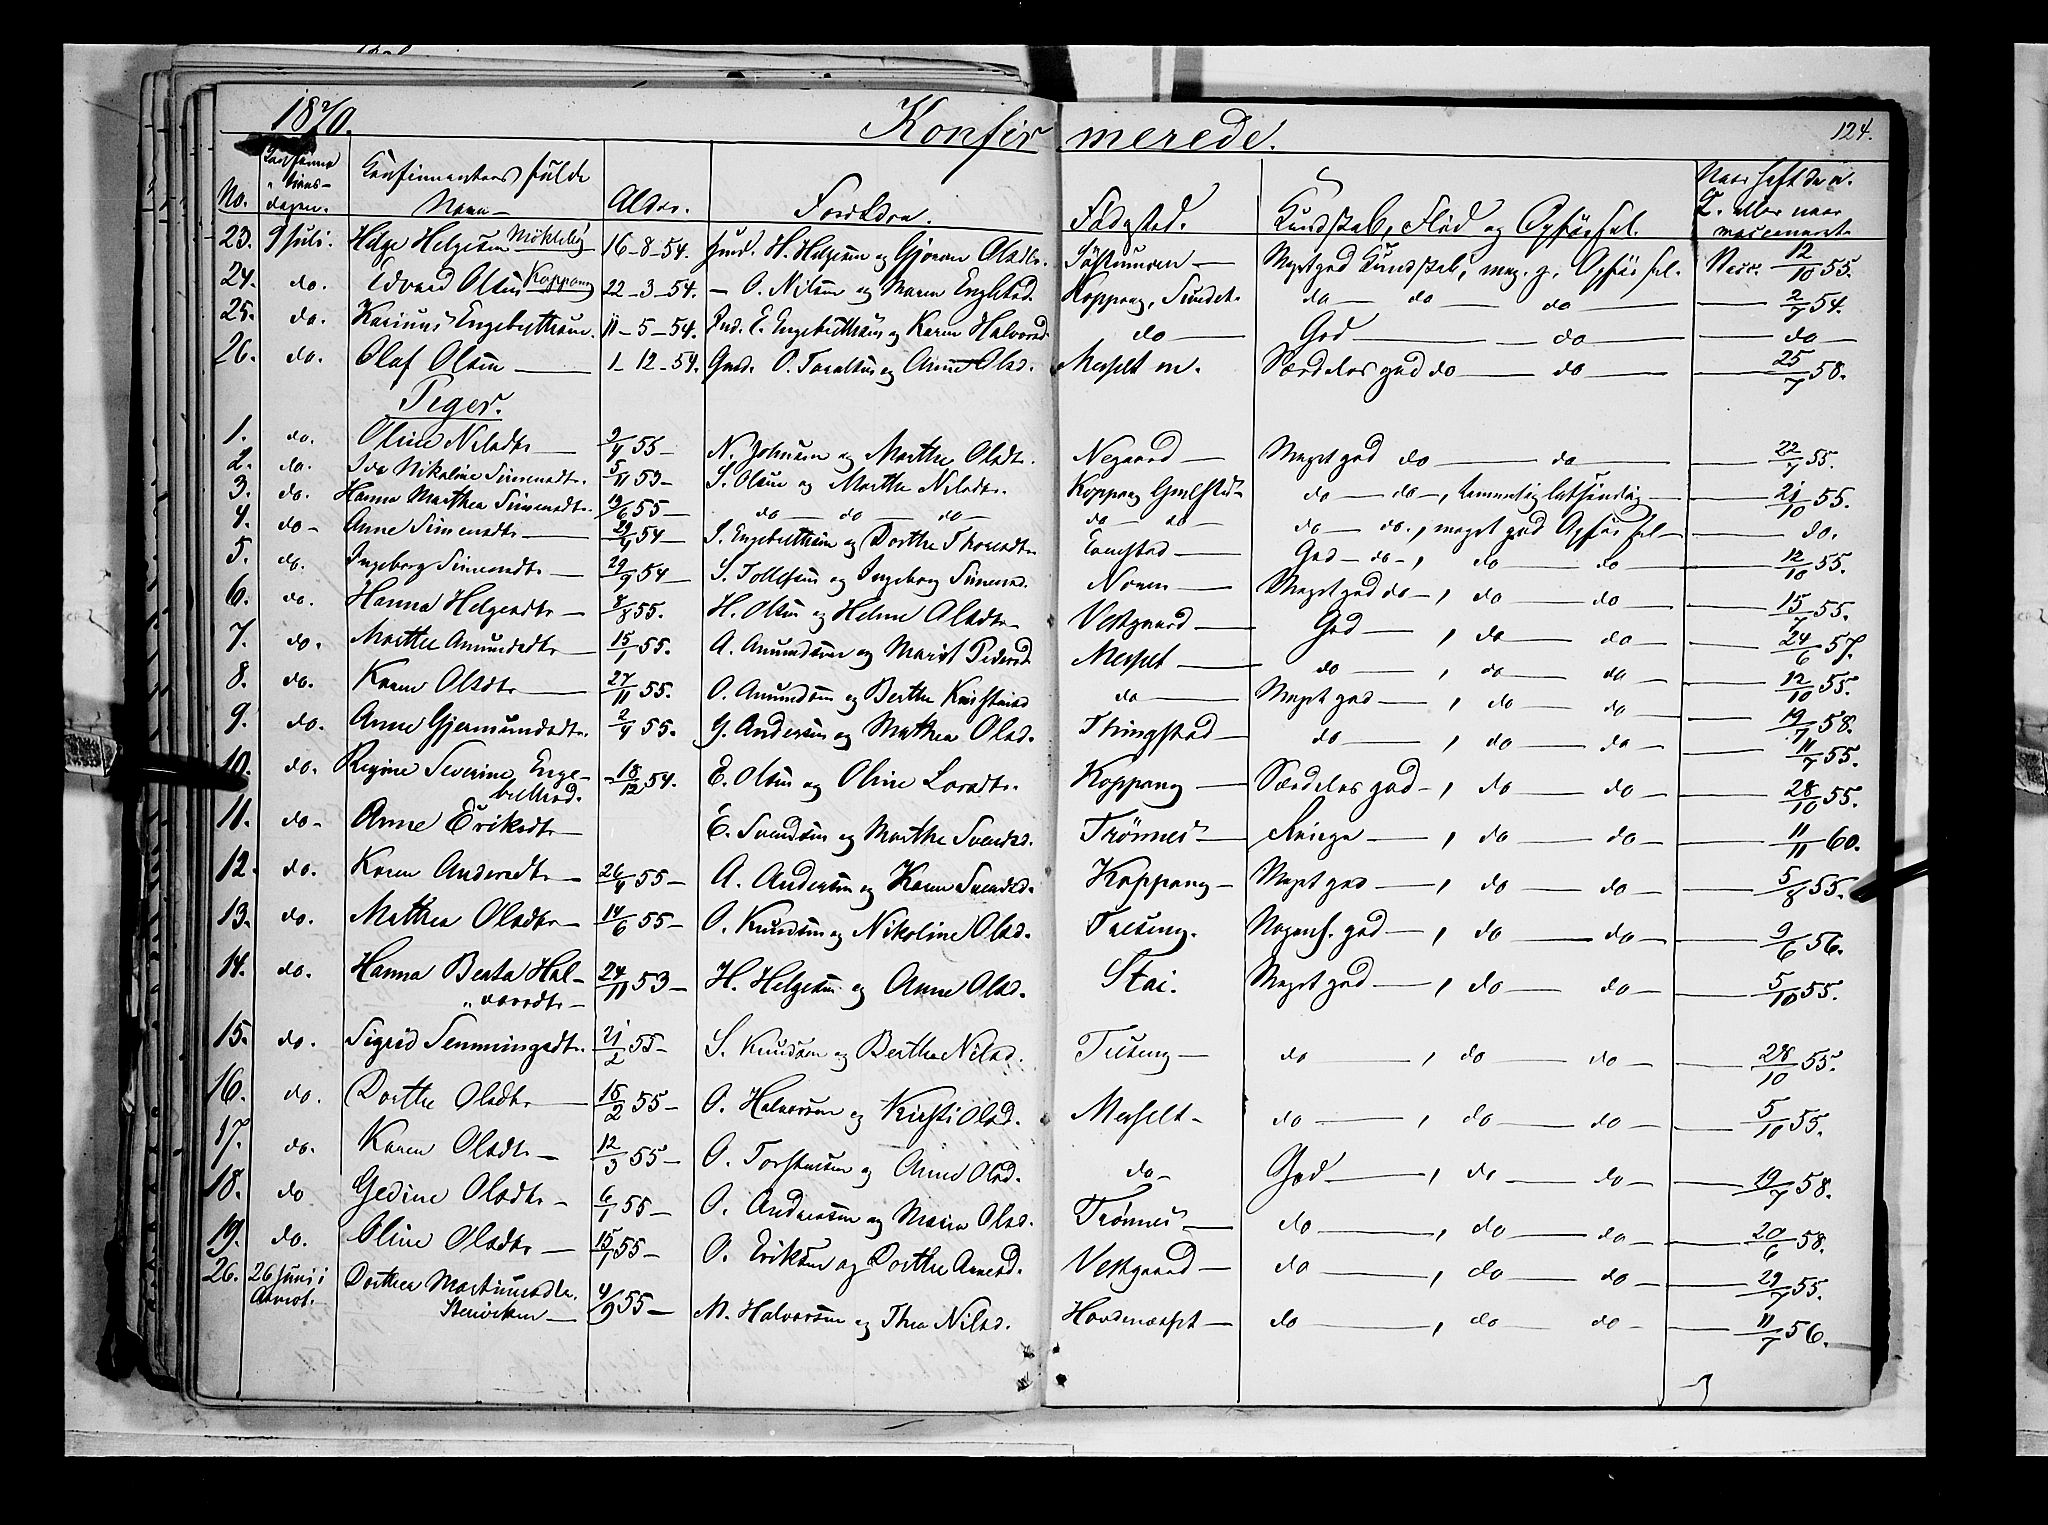 1870.
Konfir merede.
124.
No. Konfirmations-dagen. Konfirmantens fulde Navn Alder. Forældre. Fødested. Kundskab, Flid og Opførsel. Naar haft de n. K. eller naar vaccineret
23. 9 Juli. Helge Helgesen Møkleby 16-8-54. H. Helgesen og Gjøran Olsdtr. Meget god Kundskab, meg. g. Opførsel. Vacc. 12/10 55.
24. do. Edvard Olsen Koppang 22-3-54. — O. Nilsen og Maren Englstad Koppang, Sundet. do — do — do — 2/7 54.
25. do. Karinus Engebrethsen. 11-5-54. E. Engebrethsen og Karen Halvorsd. do — God — do — do —
26. do. Olaf Olsen — 1-12-54. Gmd. O. Taraldsen og Anne Olsd. Messelt m. Særdeles god do — do — 25/7 58.
Piger.
1. do. Oline Nilsdtr — 2/4 55 — N. Johnsen og Marthe Olsdtr. Negaard — Meget god do — do — 22/7 55.
2. do. Ida Nikoline Simensdtr. 5/11 53 — S. Olsen og Marthe Nilsdtr. Koppang do — do —, temmelig letsindig — 21/10 55.
3. do. Hanna Marthea Simensdtr. 19/6 55 — do — do — do — do — do — do — do., meget god Opførsel — do.
4. do — Anne Simensdtr — 29/4 54 — S. Engebrethsen og Dorthe Thoresdtr Evenstad — God — do —, do — do — 12/10 55.
5. do. Ingeborg Simensdtr — 29/9 54 — S. Tollefsen og Ingeborg Simensd. Noren — Meget god do —, do — do — 15/7 55.
6. do. Hanna Helgesdtr — 8/8 55. H. Olsen og Helene Olsdtr — Vestgaard — God —, do — do — 24/6 57.
7. do. Marthe Amundsdtr — 15/1 55. A. Amundsen og Marit Pedersd. Messelt — do —, do — do — 12/10 55.
8. do. Karen Olsdtr — 27/11 55. O. Amundsen og Berthe Kristiansd do — Meget god —, do — do — 19/7 58.
9. do. Anne Gjermundsdtr. 2/4 55. G. Andersen og Mathea Olsd. Thingstad — do —, do — do — 11/7 55.
10. do. Regine Severine Enge-
brethsd. 18/12 54. E. Olsen og Oline Larsdtr. Koppang — Særdeles god —, do — do — 28/10 55.
11. do — Anne Eriksdtr — E. Svendsen og Marthe Svendsd. Trønnes — Ringe —, do — do — 11/11 60.
12. do. Karen Andersdtr — 26/4 55 — A. Andersen og Karen Svendsd. Koppang — Meget god —, do — do — 5/8 55.
13. do. Mathea Olsdtr — 14/6 55 — O. Knudsen og Nikoline Olsd. Tresung. Nogenl. god —, do — do — 9/6 56.
14. do. Hanna Berta Hal-
vorsdtr — 24/11 53 — H. Helgesen og Anne Olsd. Stai. Meget god —, do — do — 5/10 55.
15. do. Sigrid Semmingsdtr. 21/2 55 — S. Knudsen og Berthe Nilsd. Tresung — do —, do — do — 28/10 55.
16. do. Dorthe Olsdtr — 18/2 55 — O. Halvorsen og Kirsti Olsd. Messelt — do —, do — do — 5/10 55.
17. do. Karen Olsdtr — 12/3 55 — O. Torstensen og Anne Olsd. do — God —, do — do — 19/7 58.
18. do Gedine Olsdtr — 6/1 55 — O. Andersen og Maren Olsd. Trønnes — do —, do — do — 20/6 58.
19. do. Oline Olsdtr — 15/1 55 — O. Eriksen og Dorthe Arnesd. Vestgaard — do —, do — do — 29/7 55.
26. 26 Juni i Aamot. Dorthea Martinusdtr.
Stenviken — 4/9 55 — M. Halvorsen og Thea Nilsd. Hovdmoeset — do —, do — do — 11/7 56.